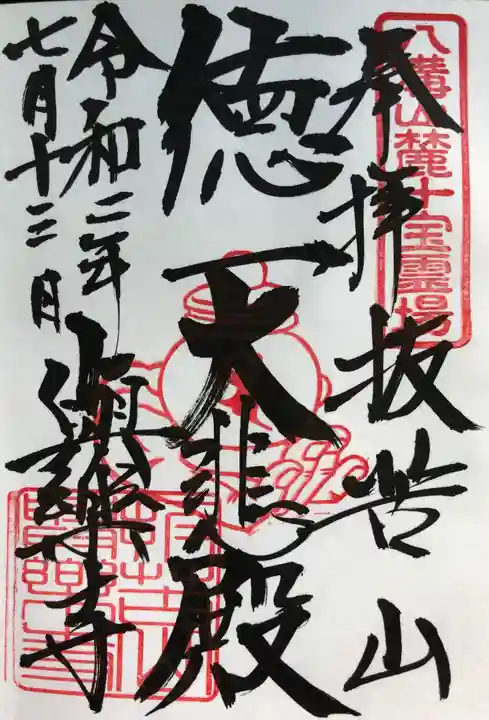 八溝山麓十宝霊場
奉拝 抜苦山
徳一大悲殿
與楽寺
令和二年
七月十三日